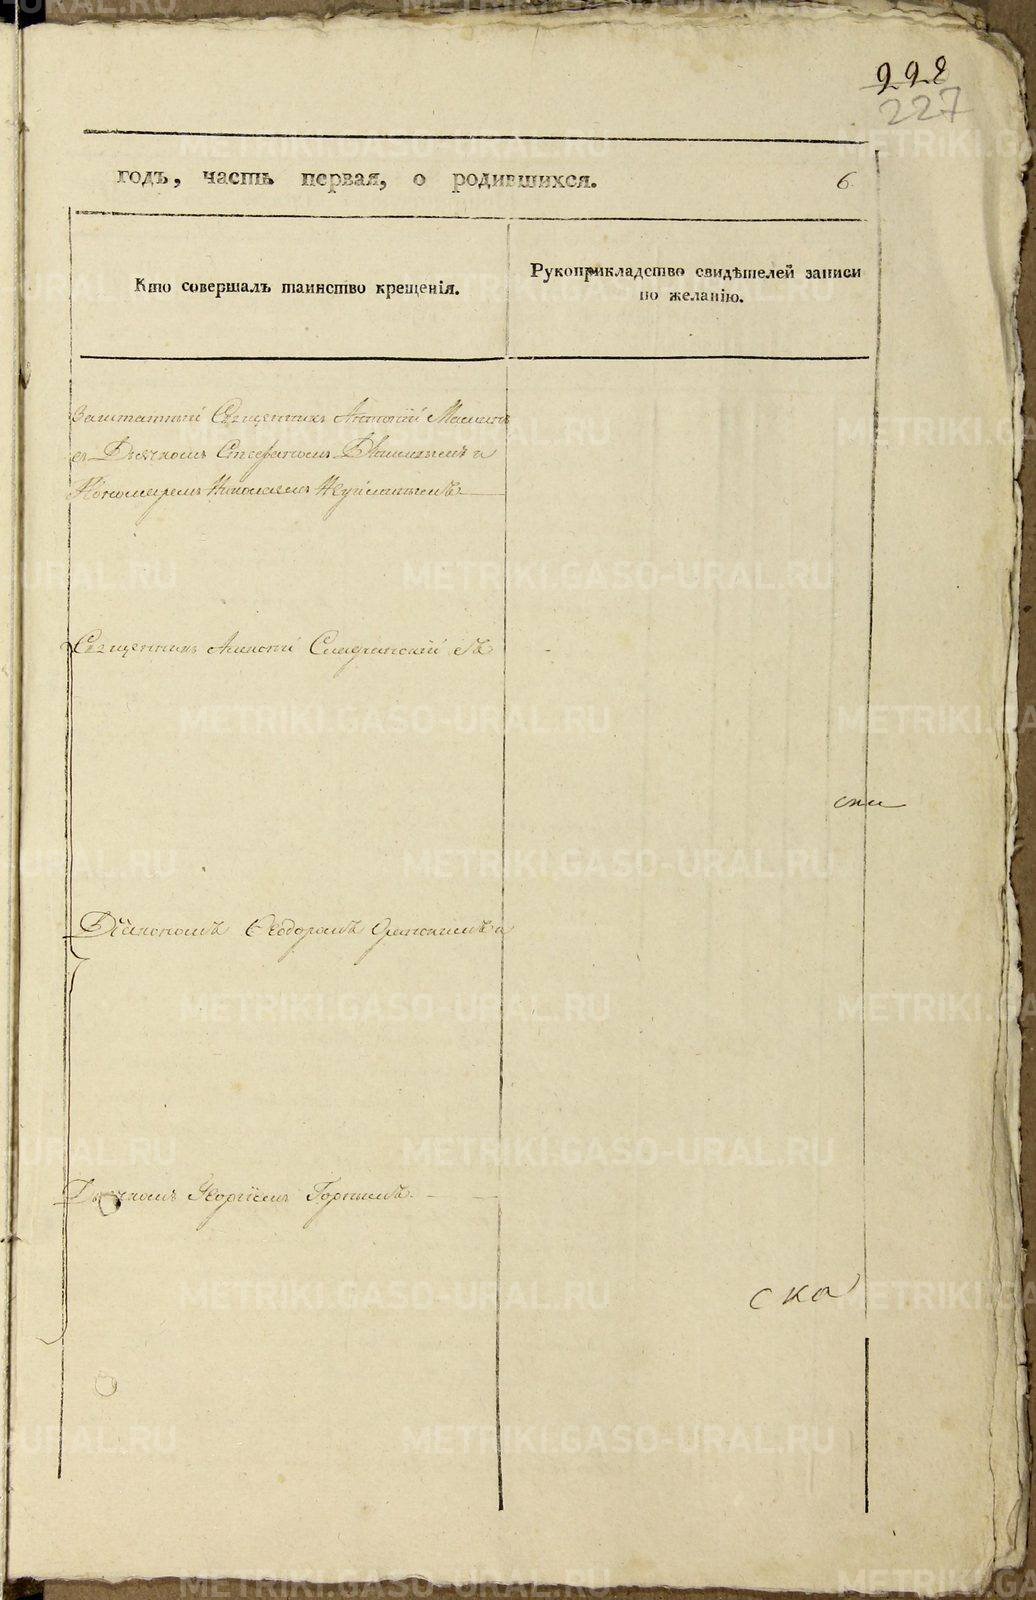 228
227
годъ, часть первая, о родившихся.
6.
Кто совершалъ таинство крещенія.
Рукоприкладство свидѣтелей записи
по желанію.
Заштатный Священникъ Антоній
съ Дьячкомъ Стефаномъ и
Пономаремъ Николаемъ
Священникъ съ
Діакономъ Ѳеодоромъ и
ска
Дьячкомъ Георгіемъ Горнымъ.
METRIKI.GASO-URAL.RU